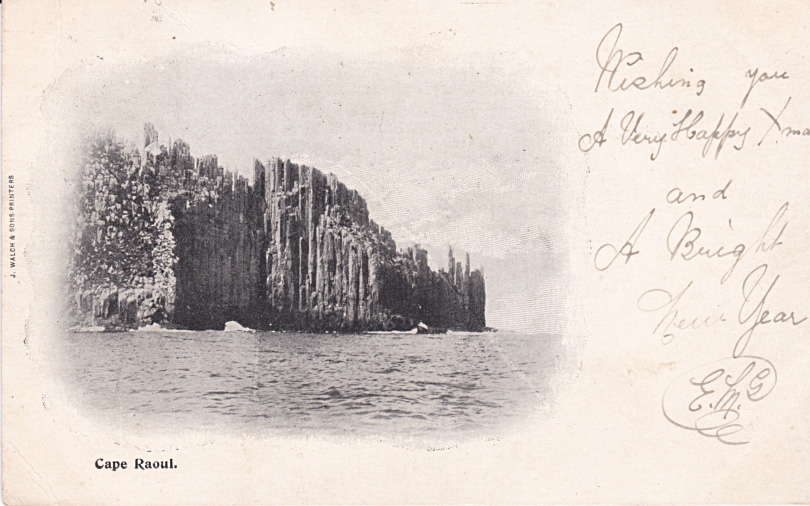 J. WALCH & SONS PRINTERS
Wishing you
A Very Happy Xma
and
A Bright
New Year
E.M.G
Cape Raoul.